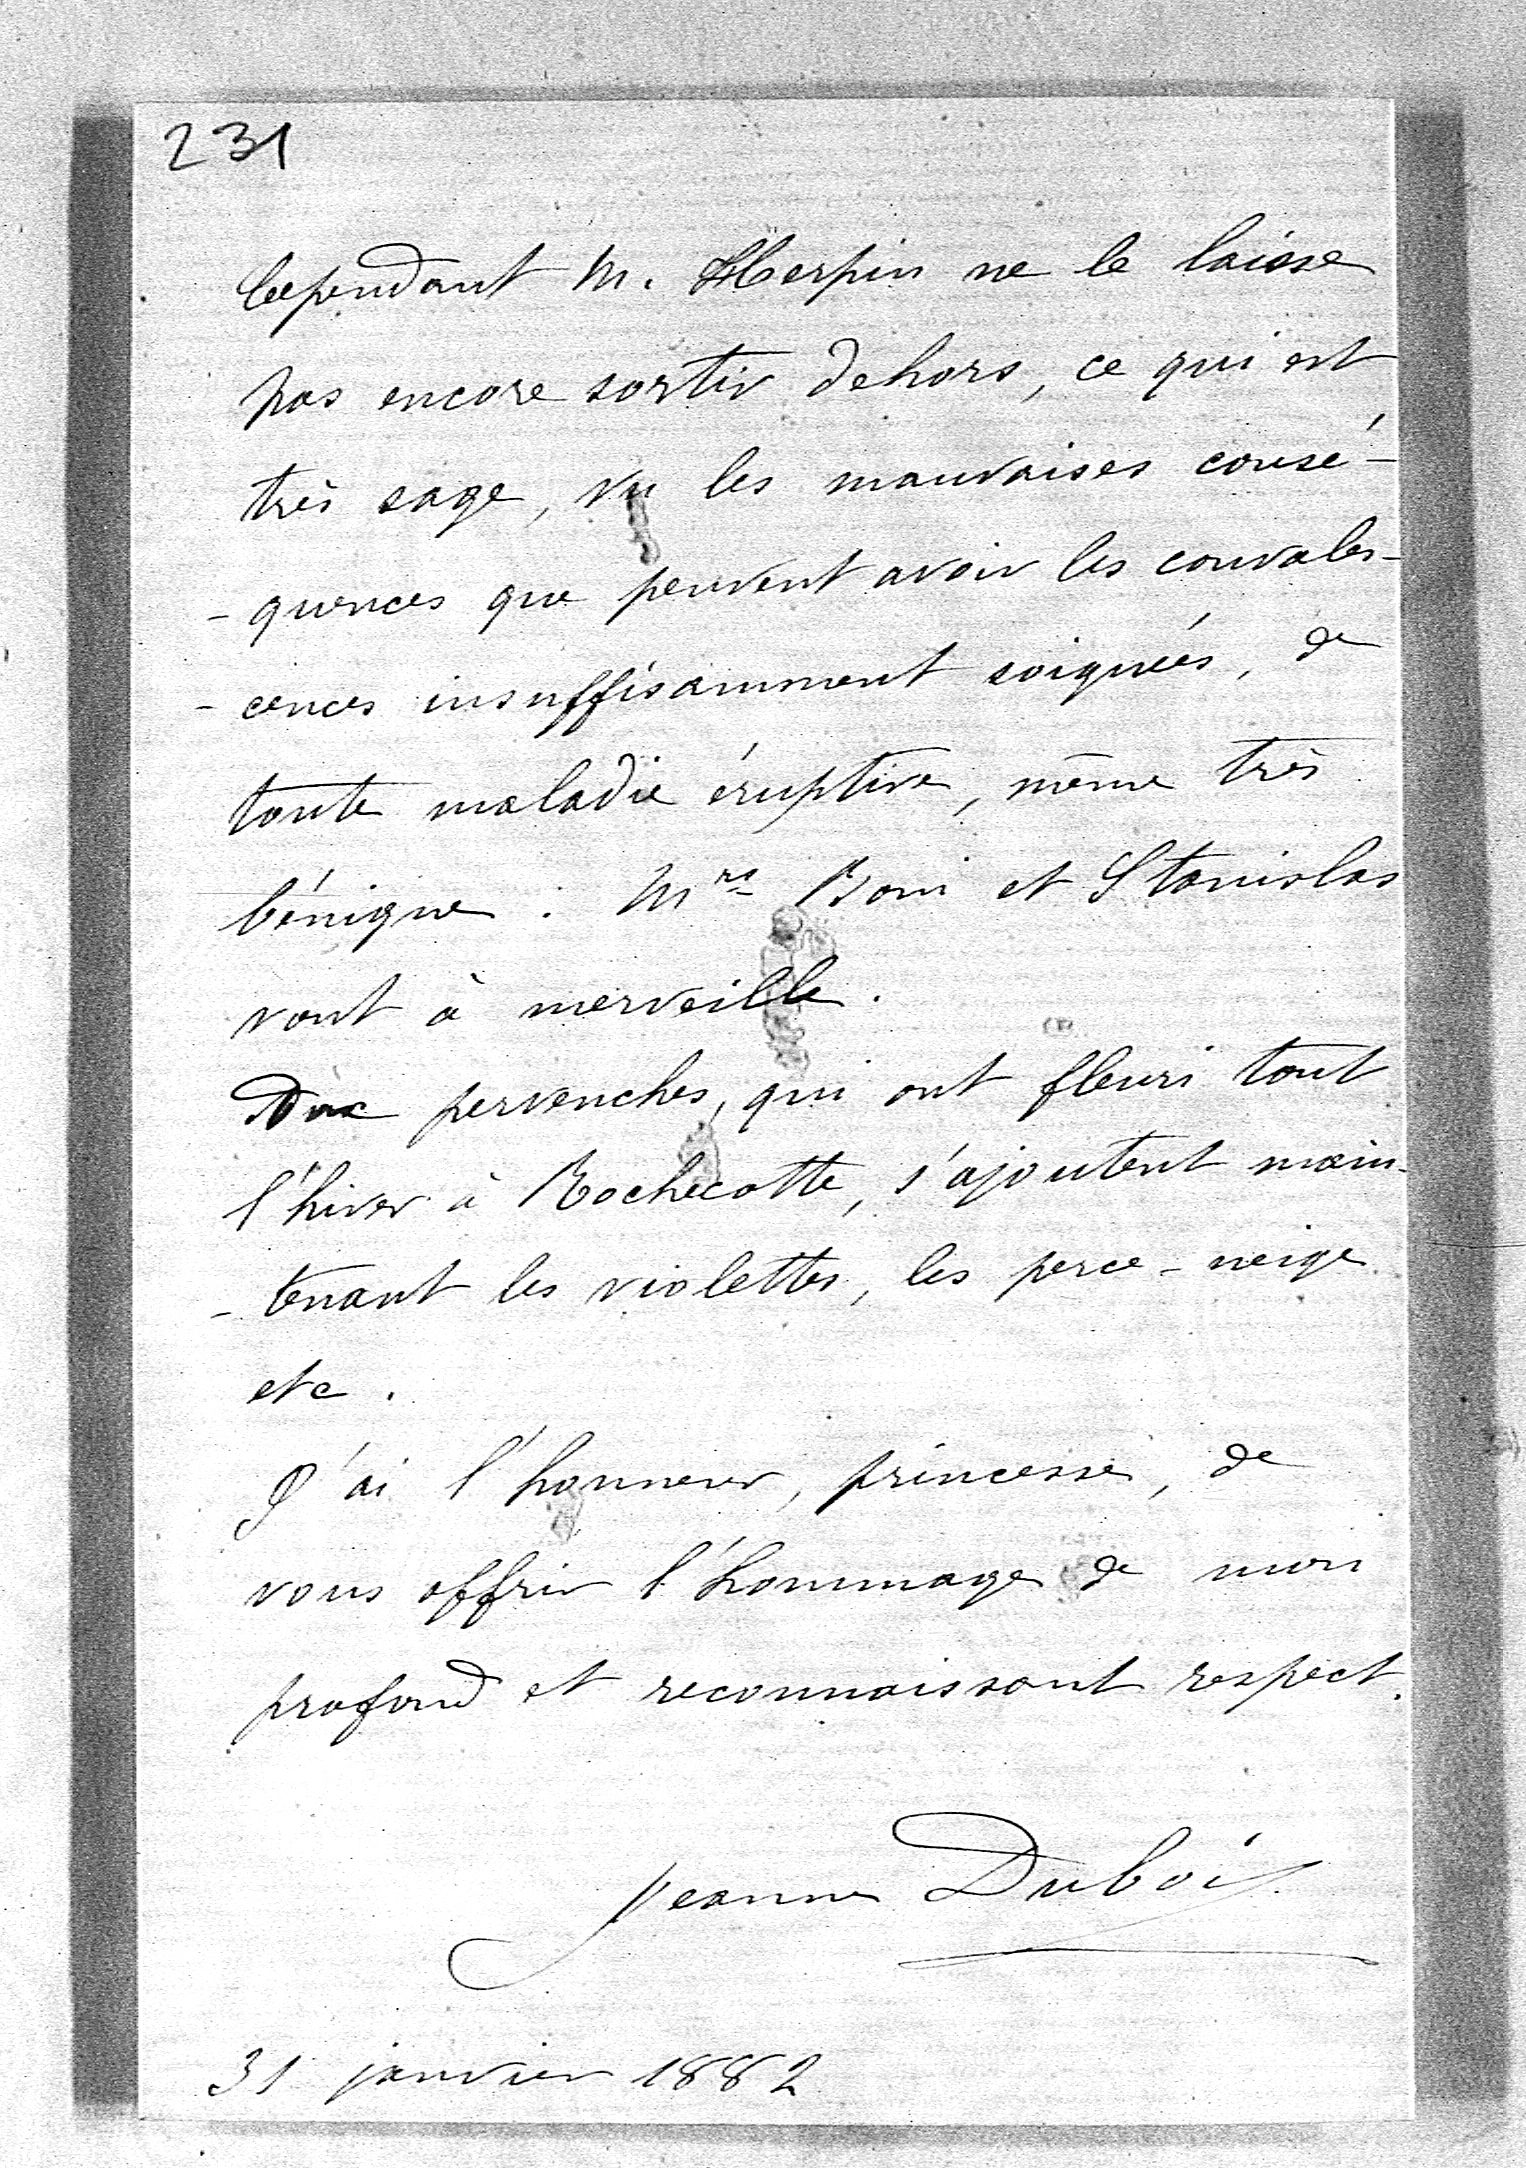 231
Cependant M. Herpin ne le laisse
pas encore sortir dehors, ce qui est
très sage, vu les mauvaises consé-
-quences que peuvent avoir les convales-
-cences insuffisamment soignées, de
toute maladie éruptive, même très
bénigne. Mrs Boni et Stanislas
vont à merveille.
Aux pervenches, qui ont fleuri tout
l'hiver à Rochecotte, s'ajoutent main-
-tenant les violettes, les perce-neige
etc.
J'ai l'honneur, princesse, de
vous offrir l'hommage de mon
profond et reconnaissant respect.
Jeanne Dubois
31 janvier 1882